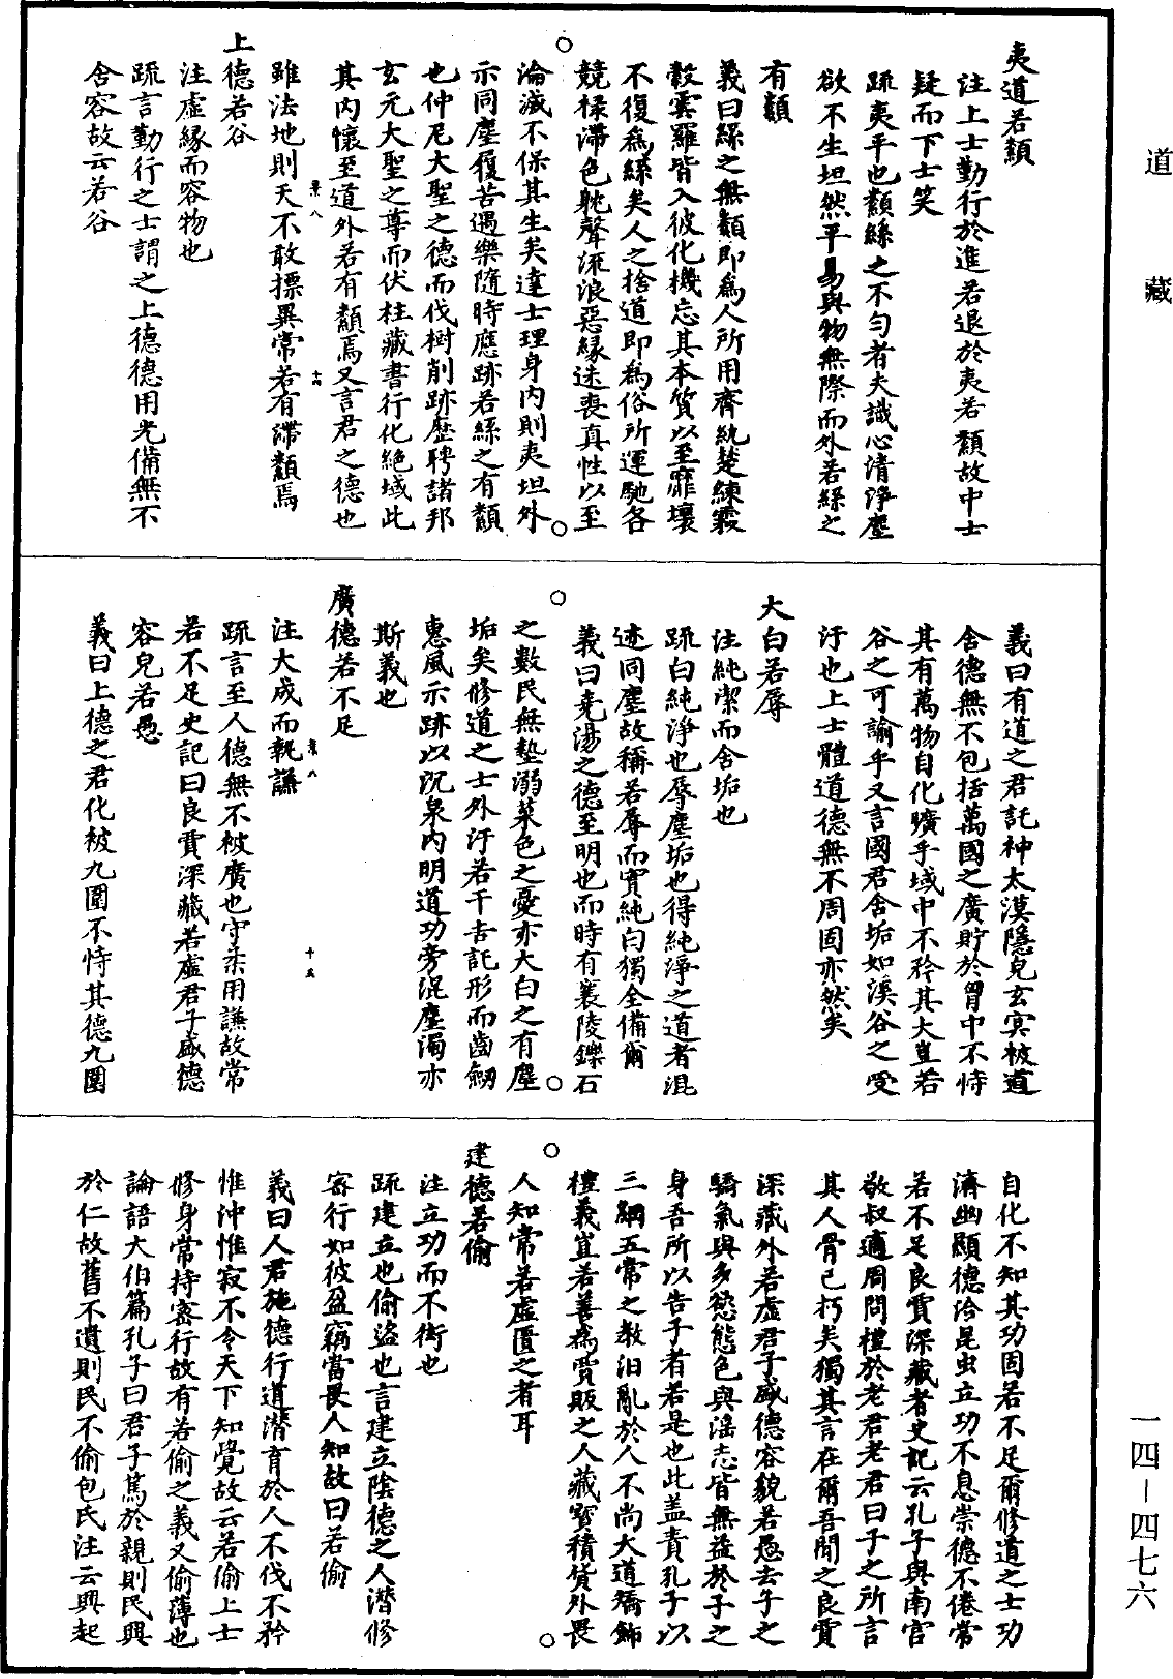 道藏
夷道若纇
注上士勤行於進若退於夷若纇故中士
疑而下士笑
疏夷平也纇絲之不勻者夫識心清淨塵
欲不生坦然平易與物無際而外若絲之
有纇
義曰絲之無纇即為人所用齊紈楚練霧
縠雲羅皆入彼化機忘其本質以至靡壞
不復為絲矣人之捨道即為俗所運馳各
競祿滯色耽聲流浪惡緣迷喪真性以至
淪滅不保其生矣達士理身內則夷坦外
示同塵履苦遇樂隨時應跡若絲之有纇
也仲尼大聖之德而伐樹削跡歷聘諸邦
玄元大聖之尊而伏柱藏書行化絕域此
其內懷至道外若有纇焉又言君之德也
雖法地則天不敢摽異常若有滯纇焉
上德若谷
注虛緣而容物也
疏言勤行之士謂之上德德用光備無不
含容故云若谷
義曰有道之君託神太漠隱皃玄冥被道
含德無不包括萬國之廣貯於胷中不恃
其有萬物自化曠乎域中不矜其大豈若
谷之可諭乎又言國君含垢如溪谷之受
汙也上士體道德無不周固亦然矣
大白若辱
注純潔而含垢也
疏白純淨也辱塵垢也得純淨之道者混
迹同塵故稱若辱而實純白獨全備爾
義曰堯湯之德至明也而時有襄陵鑠石
之數民無墊溺菜色之憂亦大白之有塵
垢矣修道之士外汙若干吉託形而齒劒
惠風示跡以沉泉內明道功旁混塵濁亦
斯義也
廣德若不足
注大成而執謙
疏言至人德無不被廣也守柔用謙故常
若不足史記曰良賈深藏若虛君子盛德
容皃若愚
義曰上德之君化被九圍不恃其德九圍
自化不知其功固若不足爾修道之士功
濟幽顯德洽昆虫立功不息崇德不倦常
若不足良賈深藏者史記云孔子與南宮
敬叔適周問禮於老君老君曰子之所言
其人骨已朽矣獨其言在爾吾聞之良賈
深藏外若虛君子盛德容貌若愚去子之
驕氣與多慾態色與淫志皆無益於子之
身吾所以告子者若是也此盖責孔子以
三綱五常之教汨亂於人不尚大道矯飾
禮義豈若善為賈販之人藏寶積貨外畏
人知常若虛匱之者耳
建德若偷
注立功而不衒也
疏建立也偷盜也言建立陰德之人潛修
密行如彼盜竊當畏人知故曰若偷
義曰人君施德行道潛育於人不伐不矜
惟沖惟寂不令天下知覺故云若偷上士
修身常持密行故有若偷之義又偷薄也
論語大伯篇孔子曰君子篤於親則民興
於仁故舊不遺則民不偷包氏注云興起
一四—四七六